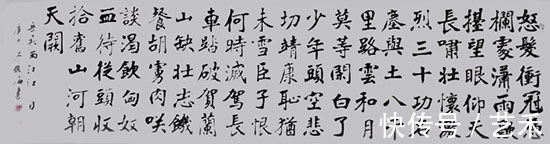 怒髮衝冠
欄處瀟雨歇
擡望眼仰天
長嘯壯懷激
烈三十功名
塵與土八千
里路雲和月
莫等閒白了
少年頭空悲
切靖康恥猶
未雪臣子恨
何時滅駕長
車踏破賀蘭
山缺壯志饑
餐胡虜肉咲
談渴飲匈奴
血待從頭收
拾舊山河朝
天闕
快传号/艺禾